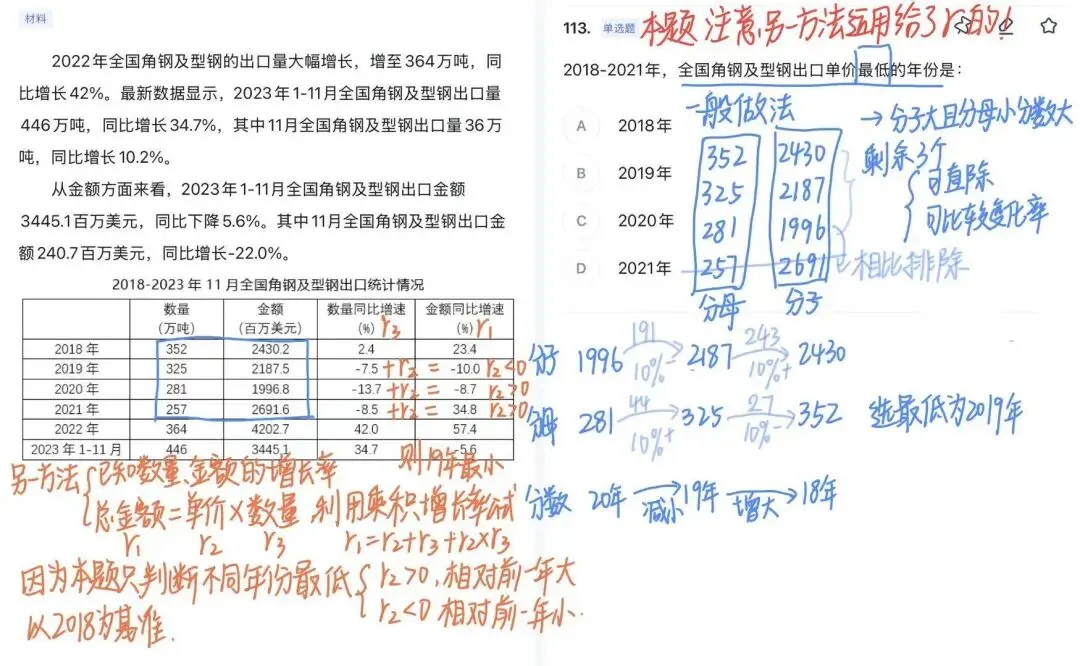 材料
2022年全国角钢及型钢的出口量大幅增长，增至364万吨，同
比增长42%。最新数据显示，2023年1-11月全国角钢及型钢出口量
446万吨，同比增长34.7%，其中11月全国角钢及型钢出口量36万
吨，同比增长10.2%。
从金额方面来看，2023年1-11月全国角钢及型钢出口金额
3445.1百万美元，同比下降5.6%。其中11月全国角钢及型钢出口金
额240.7百万美元，同比增长-22.0%。
2018-2023年11月全国角钢及型钢出口统计情况
数量 金额 数量同比增速 金额同比增速
(万吨) (百万美元) (%) r₃ (%) r₁
2018年 352 2430.2 2.4 23.4
2019年 325 2187.5 -7.5 +r₂ = -10.0 r₂<0
2020年 281 1996.8 -13.7 +r₂ = -8.7 r₂>0
2021年 257 2691.6 -8.5 +r₂ = 34.8 r₂>0
2022年 364 4202.7 42.0 57.4
2023年1-11月 446 3445.1 34.7 -5.6
则19年最小
另一方法 已知数量、金额的增长率
总金额=单价×数量 利用乘积增长率公式
r₁ r₂ r₃ r₁=r₂+r₃+r₂×r₃
因为本题只判断不同年份最低 r₂>0，相对前一年大
以2018为基准. r₂<0 相对前一年小.
113. 单选题 本题注意另一方法运用给了r的！
2018-2021年，全国角钢及型钢出口单价最低的年份是：
一般做法 → 分子大且分母小分数大
A 2018年 352 2430 剩余3个
B 2019年 325 2187 可直除
C 2020年 281 1996 可比较变化率
D 2021年 257 2691 相比排除
分母 分子
分子 1996 191 10%- → 2187 243 10%+ → 2430
分母 281 44 10%+ → 325 27 10%- → 352 选最低为2019年
分数 20年 减小 → 19年 增大 → 18年